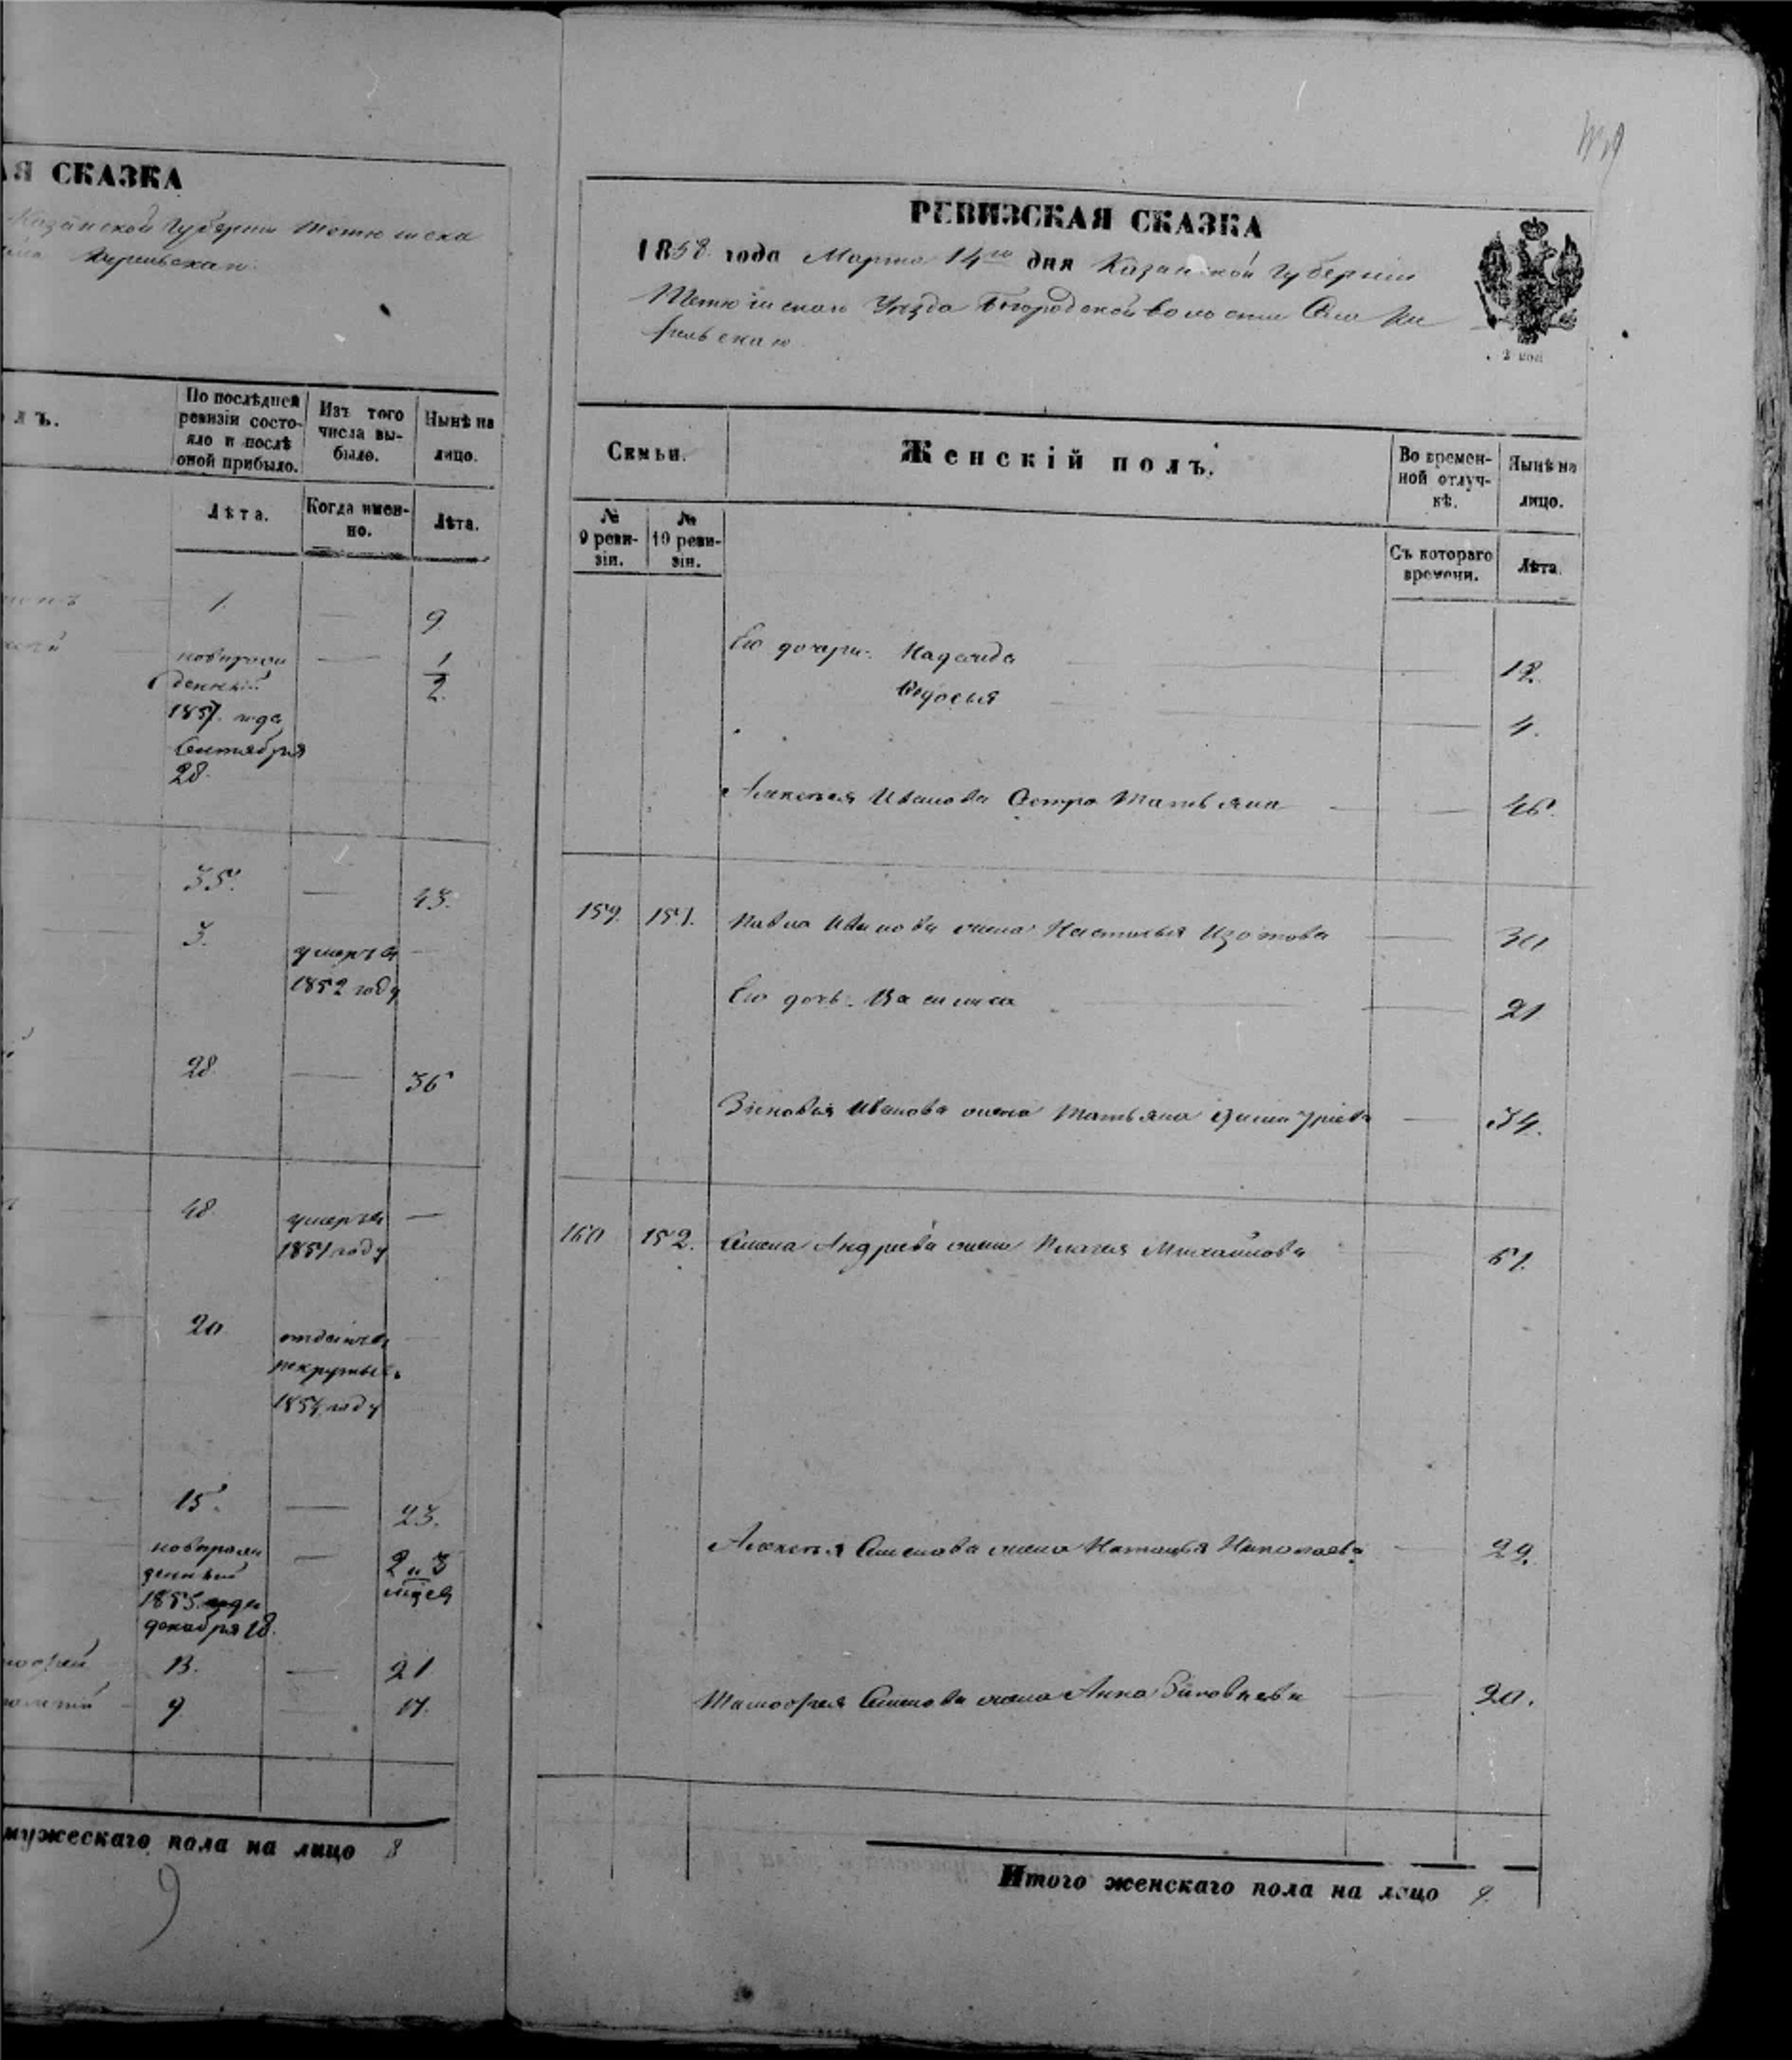 АЯ СКАЗКА
Казанской Губернии Тетюшска
лъ.
По послѣдней ревизіи состояло и послѣ оной прибыло.
Изъ того числа выбыло.
Нынѣ на лицо.
Лѣта.
Когда именно.
Лѣта.
1. — 9
новорож
денный
1857 года
Сентября
28.
— 1/2.
35. — 43.
3. умерѣ —
1852 году
28 — 36
48 умерѣ —
1857 году
20 отданъ —
рекруты
1854 году
15. — 23.
новорож
денный
1855 года
декабря 18.
— 2 и 3
мѣся
13. — 21
9 — 17.
мужескаго пола на лицо 8
9
РЕВИЗСКАЯ СКАЗКА
1858 года Марта 14го дня Казанской Губернии
Тетюшскаго Уѣзда Богородской волости Села
2 коп
Семьи.
Женскій полъ.
Во временной отлучкѣ.
Нынѣ на лицо.
№ 9 ревизіи.
№ 10 ревизіи.
Съ котораго времени.
Лѣта.
Его дочери: Надежда — 12.
Федосья — 4.
Алексея Иванова Сестра Татьяна — 46.
159. 151. Павла Иванова жена Настасья Изотова — 30
Его дочь. Василиса — 21
Зиновья Иванова жена Татьяна Димитріева — 34.
160 152. Семена Андреева жена Пелагея Михайлова 61.
Алексея Семенова жена Наталья Николаева — 29.
Тимофея Семенова жена Анна Зиновьева — 20.
Итого женскаго пола на лицо 9.